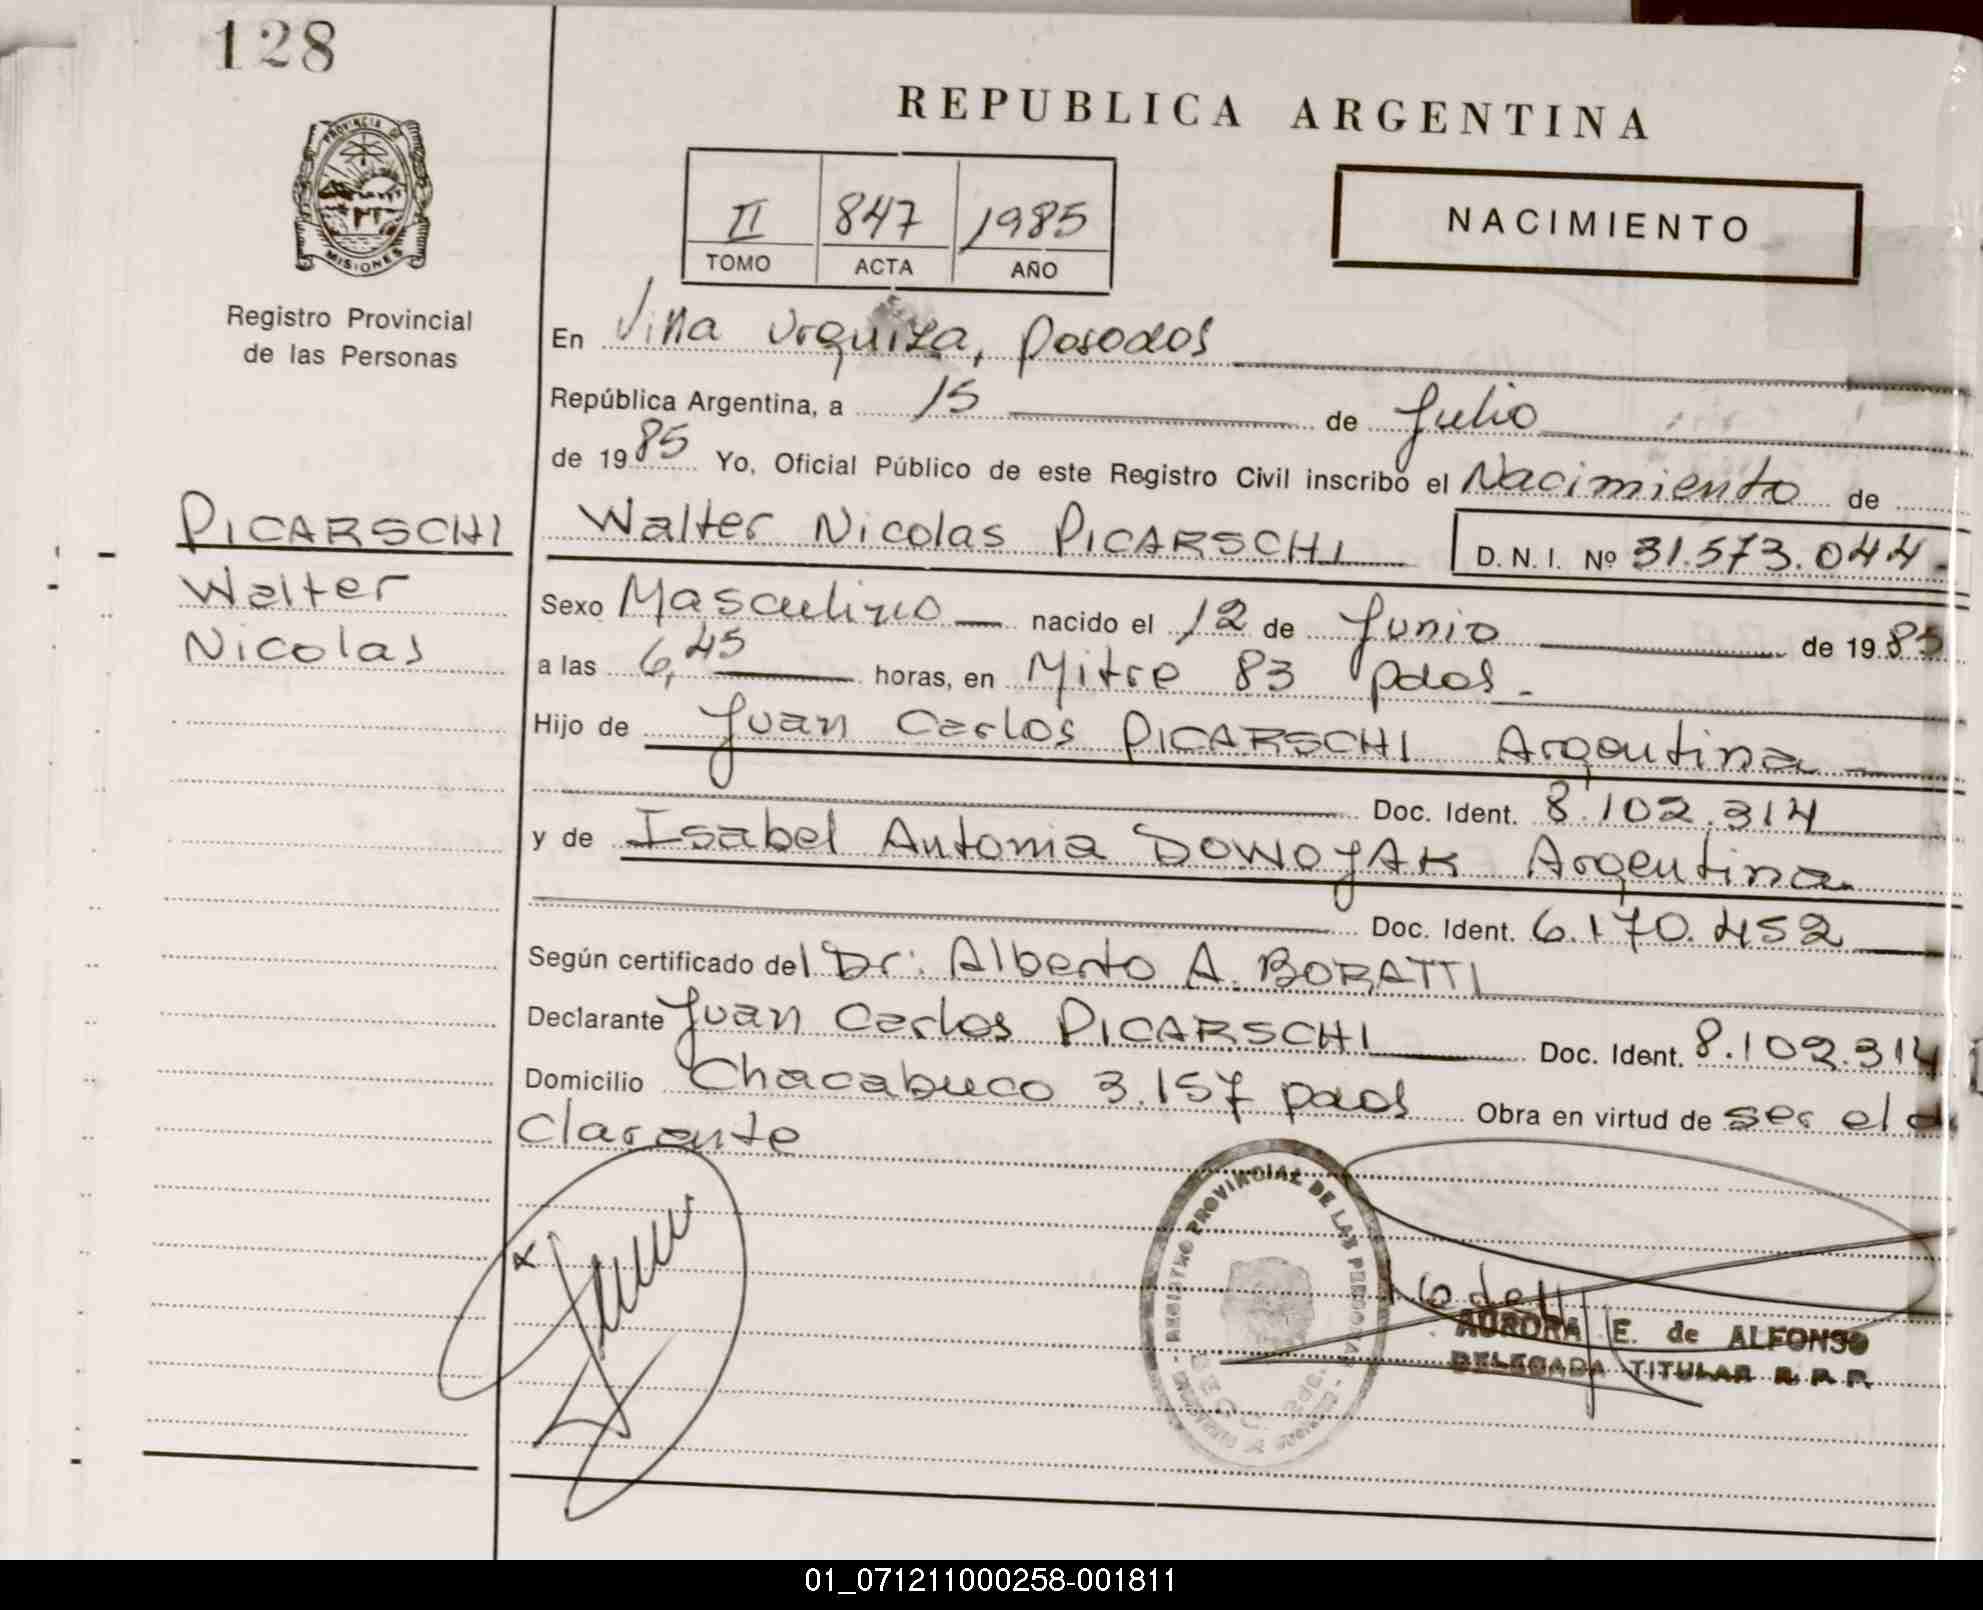 128
REPUBLICA ARGENTINA
PROVINCIA DE
MISIONES
Registro Provincial
de las Personas
II 847 1985
TOMO ACTA AÑO
NACIMIENTO
En Villa Urquiza, Posadas
República Argentina, a 15 de Julio
de 1985 Yo, Oficial Público de este Registro Civil inscribo el Nacimiento de
PICARSCHI
Walter
Nicolas
Walter Nicolas PICARSCHI D. N. I. Nº 31.573.044
Sexo Masculino nacido el 12 de Junio de 1985
a las 6,45 horas, en Mitre 83 pdas.
Hijo de Juan Carlos PICARSCHI Argentina
Doc. Ident. 8.102.314
y de Isabel Antonia DOWOJAK Argentina
Doc. Ident. 6.170.452
Según certificado del Dr: Alberto A. BORATTI
Declarante Juan Carlos PICARSCHI Doc. Ident. 8.102.314
Domicilio Chacabuco 3.157 pdas Obra en virtud de ser el d
clarante
REGISTRO PROVINCIAL DE LAS PERSONAS
AURORA E. de ALFONSO
DELEGADA TITULAR R. P. P.
01_071211000258-001811